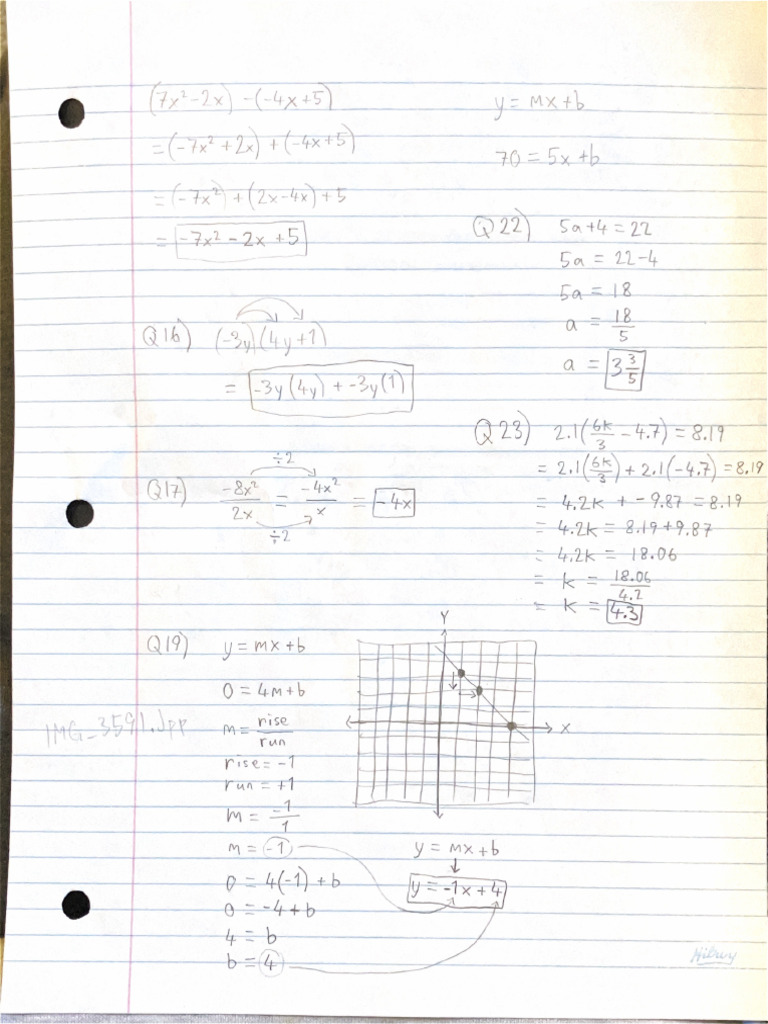 (7x² - 2x) - (-4x + 5)
= (-7x² + 2x) + (-4x + 5)
= (-7x²) + (2x - 4x) + 5
= -7x² - 2x + 5
Q16) (-3y)(4y + 1)
= -3y(4y) + -3y(1)
÷2
Q17) -8x²/2x = -4x²/x = -4x
÷2
Q19) y = mx + b
0 = 4m + b
m = rise/run
rise = -1
run = +1
m = -1/1
m = -1
0 = 4(-1) + b
0 = -4 + b
4 = b
b = 4
IMG_3591.Jpp
Y
X
y = mx + b
y = -1x + 4
y = mx + b
70 = 5x + b
Q22) 5a + 4 = 22
5a = 22 - 4
5a = 18
a = 18/5
a = 3 3/5
Q23) 2.1(6k/3 - 4.7) = 8.19
= 2.1(6k/3) + 2.1(-4.7) = 8.19
= 4.2k + -9.87 = 8.19
= 4.2k = 8.19 + 9.87
= 4.2k = 18.06
= k = 18.06/4.2
= k = 4.3
Hilroy